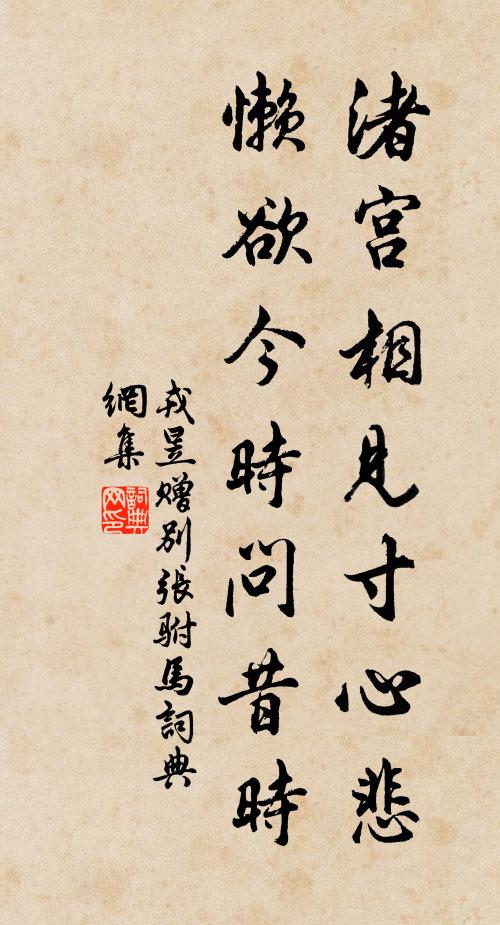 渚宫相見寸心悲
懶欲今時問昔時
戎昱赠别張駙馬詞典
網集
詞典
网印